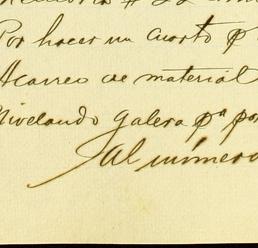 Por hacer un cuarto p
Acarreo de material
Nivelando galera pa por
Jal número